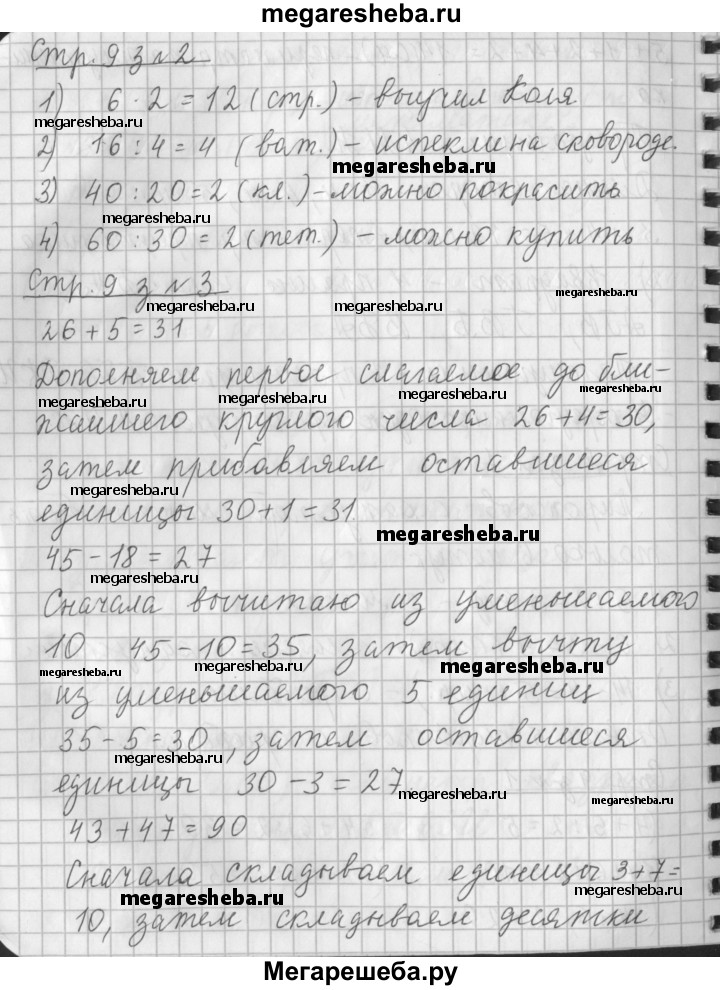 megaresheba.ru
Стр. 9 з № 2
1) 6 · 2 = 12 (стр.) – выучил Коля
megaresheba.ru
2) 16 : 4 = 4 (ват.) – испекли на сковороде.
megaresheba.ru
megaresheba.ru
3) 40 : 20 = 2 (кл.) – можно покрасить
megaresheba.ru
4) 60 : 30 = 2 (тет.) – можно купить
Стр. 9 з № 3
megaresheba.ru megaresheba.ru megaresheba.ru
26 + 5 = 31
Дополняем первое слагаемое до бли-
megaresheba.ru megaresheba.ru megaresheba.ru
жайшего круглого числа 26 + 4 = 30,
затем прибавляем оставшиеся
megaresheba.ru
единицы 30 + 1 = 31.
megaresheba.ru
45 – 18 = 27
megaresheba.ru
Сначала вычитаю из уменьшаемого
10 45 – 10 = 35, затем вычту
megaresheba.ru megaresheba.ru megaresheba.ru
из уменьшаемого 5 единиц
35 – 5 = 30, затем оставшиеся
megaresheba.ru
единицы 30 – 3 = 27.
megaresheba.ru megaresheba.ru
megaresheba.ru
43 + 47 = 90
Сначала складываем единицы 3 + 7 =
megaresheba.ru megaresheba.ru
10, затем складываем десятки
Мегарешеба.ру